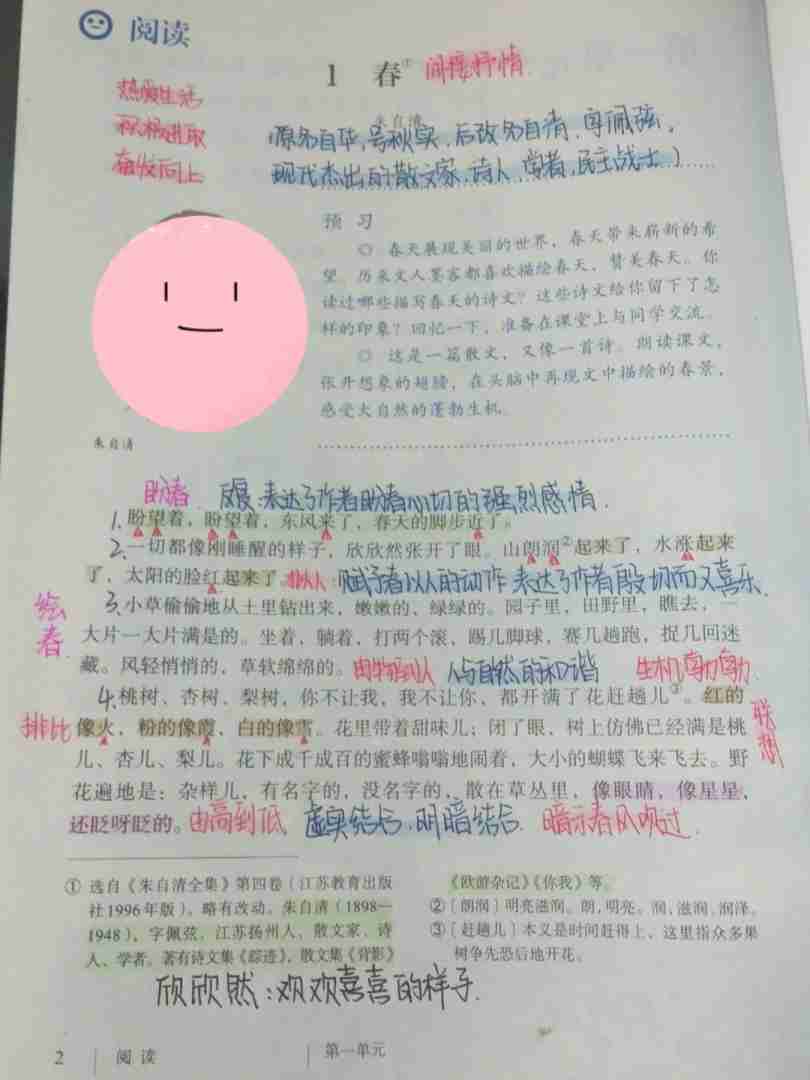 阅读
1 春① 间接抒情
热爱生活
朱自清
积极进取
原名自华,号秋实,后改名自清,字佩弦,
奋发向上
现代杰出的散文家,诗人,学者,民主战士)
预习
◎ 春天展现美丽的世界,春天带来崭新的希
望。历来文人墨客都喜欢描绘春天,赞美春天。你
读过哪些描写春天的诗文?这些诗文给你留下了怎
样的印象?回忆一下,准备在课堂上与同学交流。
◎ 这是一篇散文,又像一首诗。朗读课文,
张开想象的翅膀,在头脑中再现文中描绘的春景,
感受大自然的蓬勃生机。
朱自清
盼春 反复:表达了作者盼春心切的强烈感情.
1.盼望着,盼望着,东风来了,春天的脚步近了。
2.一切都像刚睡醒的样子,欣欣然张开了眼。山朗润②起来了,水涨起来
了,太阳的脸红起来了。拟人:赋予春以人的动作 表达了作者殷切而又喜乐.
绘春
3.小草偷偷地从土里钻出来,嫩嫩的,绿绿的。园子里,田野里,瞧去,一
大片一大片满是的。坐着,躺着,打两个滚,踢几脚球,赛几趟跑,捉几回迷
藏。风轻悄悄的,草软绵绵的。由物到人 人与自然的和谐 生机勃勃
4.桃树、杏树、梨树,你不让我,我不让你,都开满了花赶趟儿③。红的
排比 像火,粉的像霞,白的像雪。花里带着甜味儿;闭了眼,树上仿佛已经满是桃
联想
儿、杏儿、梨儿。花下成千成百的蜜蜂嗡嗡地闹着,大小的蝴蝶飞来飞去。野
花遍地是:杂样儿,有名字的,没名字的,散在草丛里,像眼睛,像星星,
还眨呀眨的。由高到低 虚实结合,明暗结合. 暗示春风吹过.
① 选自《朱自清全集》第四卷(江苏教育出版
社1996年版)。略有改动。朱自清(1898—
1948),字佩弦,江苏扬州人,散文家、诗
人、学者。著有诗文集《踪迹》,散文集《背影》
《欧游杂记》《你我》等。
②〔朗润〕明亮滋润。朗,明亮。润,滋润、润泽。
③〔赶趟儿〕本义是时间赶得上,这里指众多果
树争先恐后地开花。
欣欣然:欢欢喜喜的样子.
2 阅读 第一单元